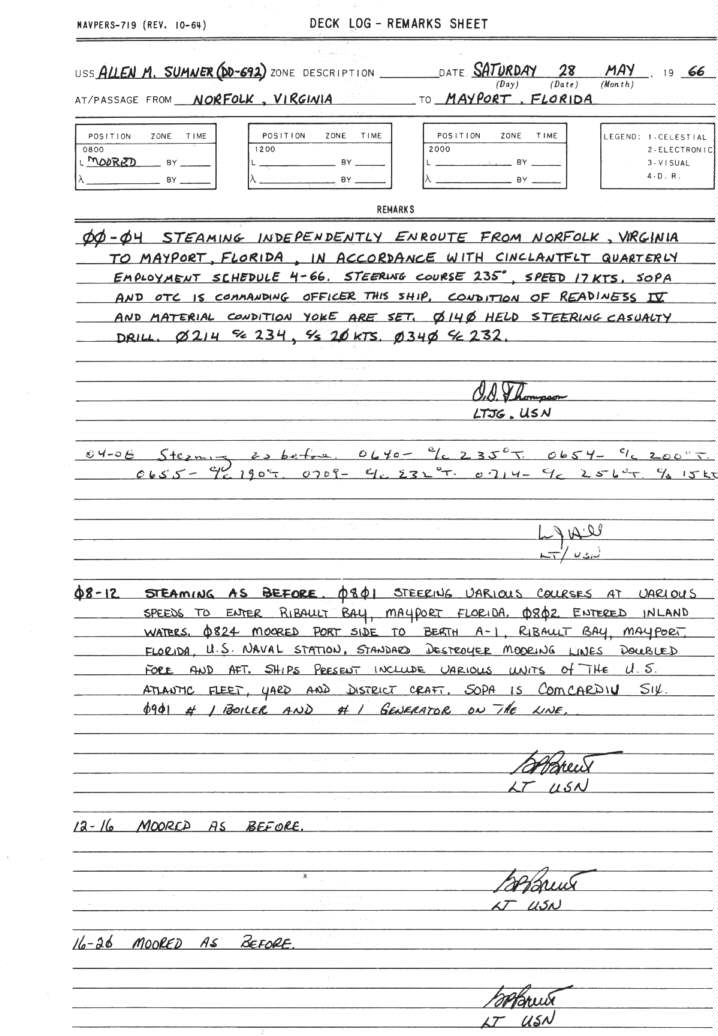 NAVPERS-719 (REV. 10-64) DECK LOG - REMARKS SHEET
USS ALLEN M. SUMNER (DD-692) ZONE DESCRIPTION DATE SATURDAY 28 MAY, 19 66
(Day) (Date) (Month)
AT/PASSAGE FROM NORFOLK, VIRGINIA TO MAYPORT, FLORIDA
POSITION ZONE TIME
0800
L MOORED BY
λ BY
POSITION ZONE TIME
1200
L BY
λ BY
POSITION ZONE TIME
2000
L BY
λ BY
LEGEND: 1-CELESTIAL
2-ELECTRONIC
3-VISUAL
4-D. R.
REMARKS
ØØ-Ø4 STEAMING INDEPENDENTLY ENROUTE FROM NORFOLK, VIRGINIA
TO MAYPORT, FLORIDA, IN ACCORDANCE WITH CINCLANTFLT QUARTERLY
EMPLOYMENT SCHEDULE 4-66. STEERING COURSE 235°, SPEED 17 KTS. SOPA
AND OTC IS COMMANDING OFFICER THIS SHIP. CONDITION OF READINESS IV
AND MATERIAL CONDITION YOKE ARE SET. Ø14Ø HELD STEERING CASUALTY
DRILL. Ø214 C/C 234, C/S 2Ø KTS. Ø34Ø C/C 232.
O.D. Thompson
LTJG, USN
04-08 Steaming as before. 0640- C/C 235°T. 0654- C/C 200°T.
0655- C/C 190°T. 0709- C/C 232°T. 0714- C/C 256°T. C/S 15 KT
LT/USN
Ø8-12 STEAMING AS BEFORE. Ø8Ø1 STEERING VARIOUS COURSES AT VARIOUS
SPEEDS TO ENTER RIBAULT BAY, MAYPORT FLORIDA. Ø8Ø2 ENTERED INLAND
WATERS. Ø824 MOORED PORT SIDE TO BERTH A-1, RIBAULT BAY, MAYPORT,
FLORIDA, U.S. NAVAL STATION, STANDARD DESTROYER MOORING LINES DOUBLED
FORE AND AFT. SHIPS PRESENT INCLUDE VARIOUS UNITS OF THE U.S.
ATLANTIC FLEET, YARD AND DISTRICT CRAFT. SOPA IS COMCARDIV SIX.
Ø9Ø1 # 1 BOILER AND # 1 GENERATOR ON THE LINE.
Brent
LT USN
12-16 MOORED AS BEFORE.
Brent
LT USN
16-20 MOORED AS BEFORE.
Brent
LT USN